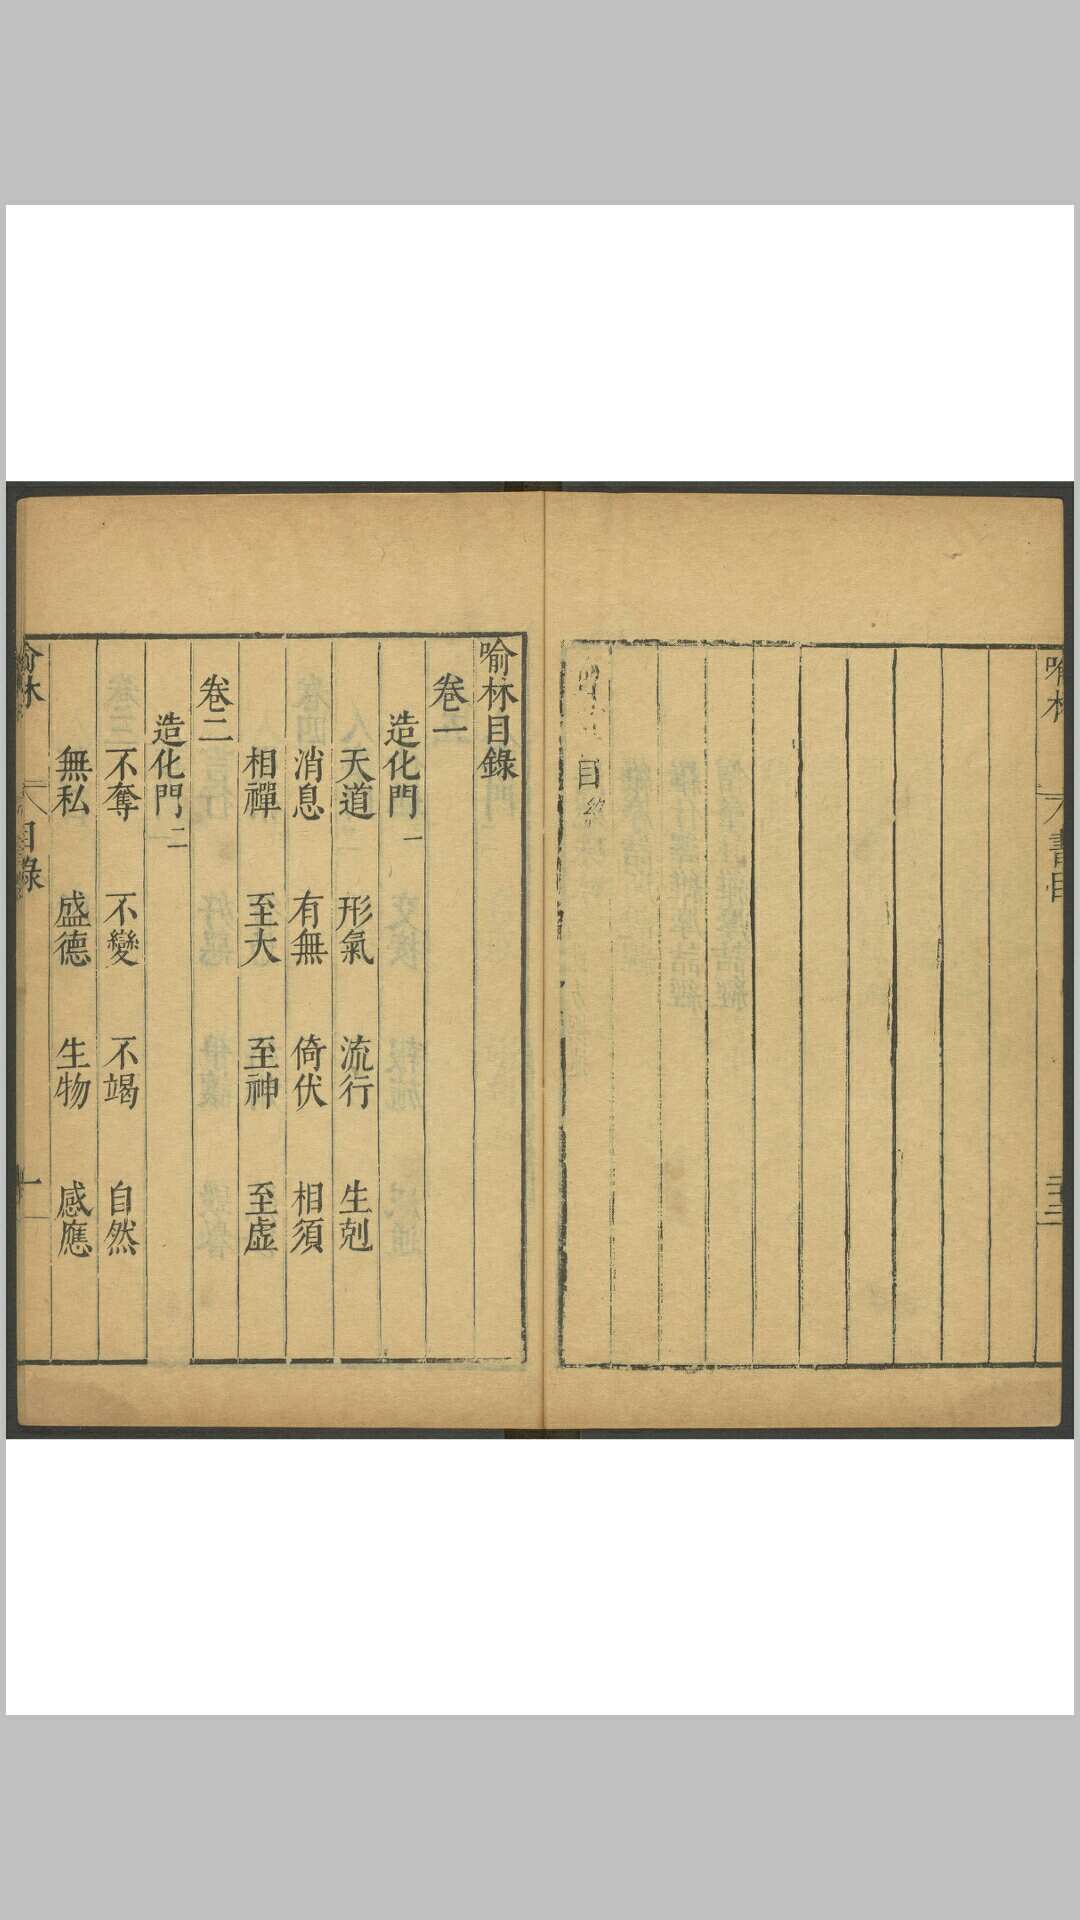 喻林
書目
喻林目錄
卷一
造化門一
天道 形氣 流行 生剋
消息 有無 倚伏 相須
相禪 至大 至神 至虛
卷二
造化門二
不奪 不變 不竭 自然
無私 盛德 生物 感應
喻林
目錄
一